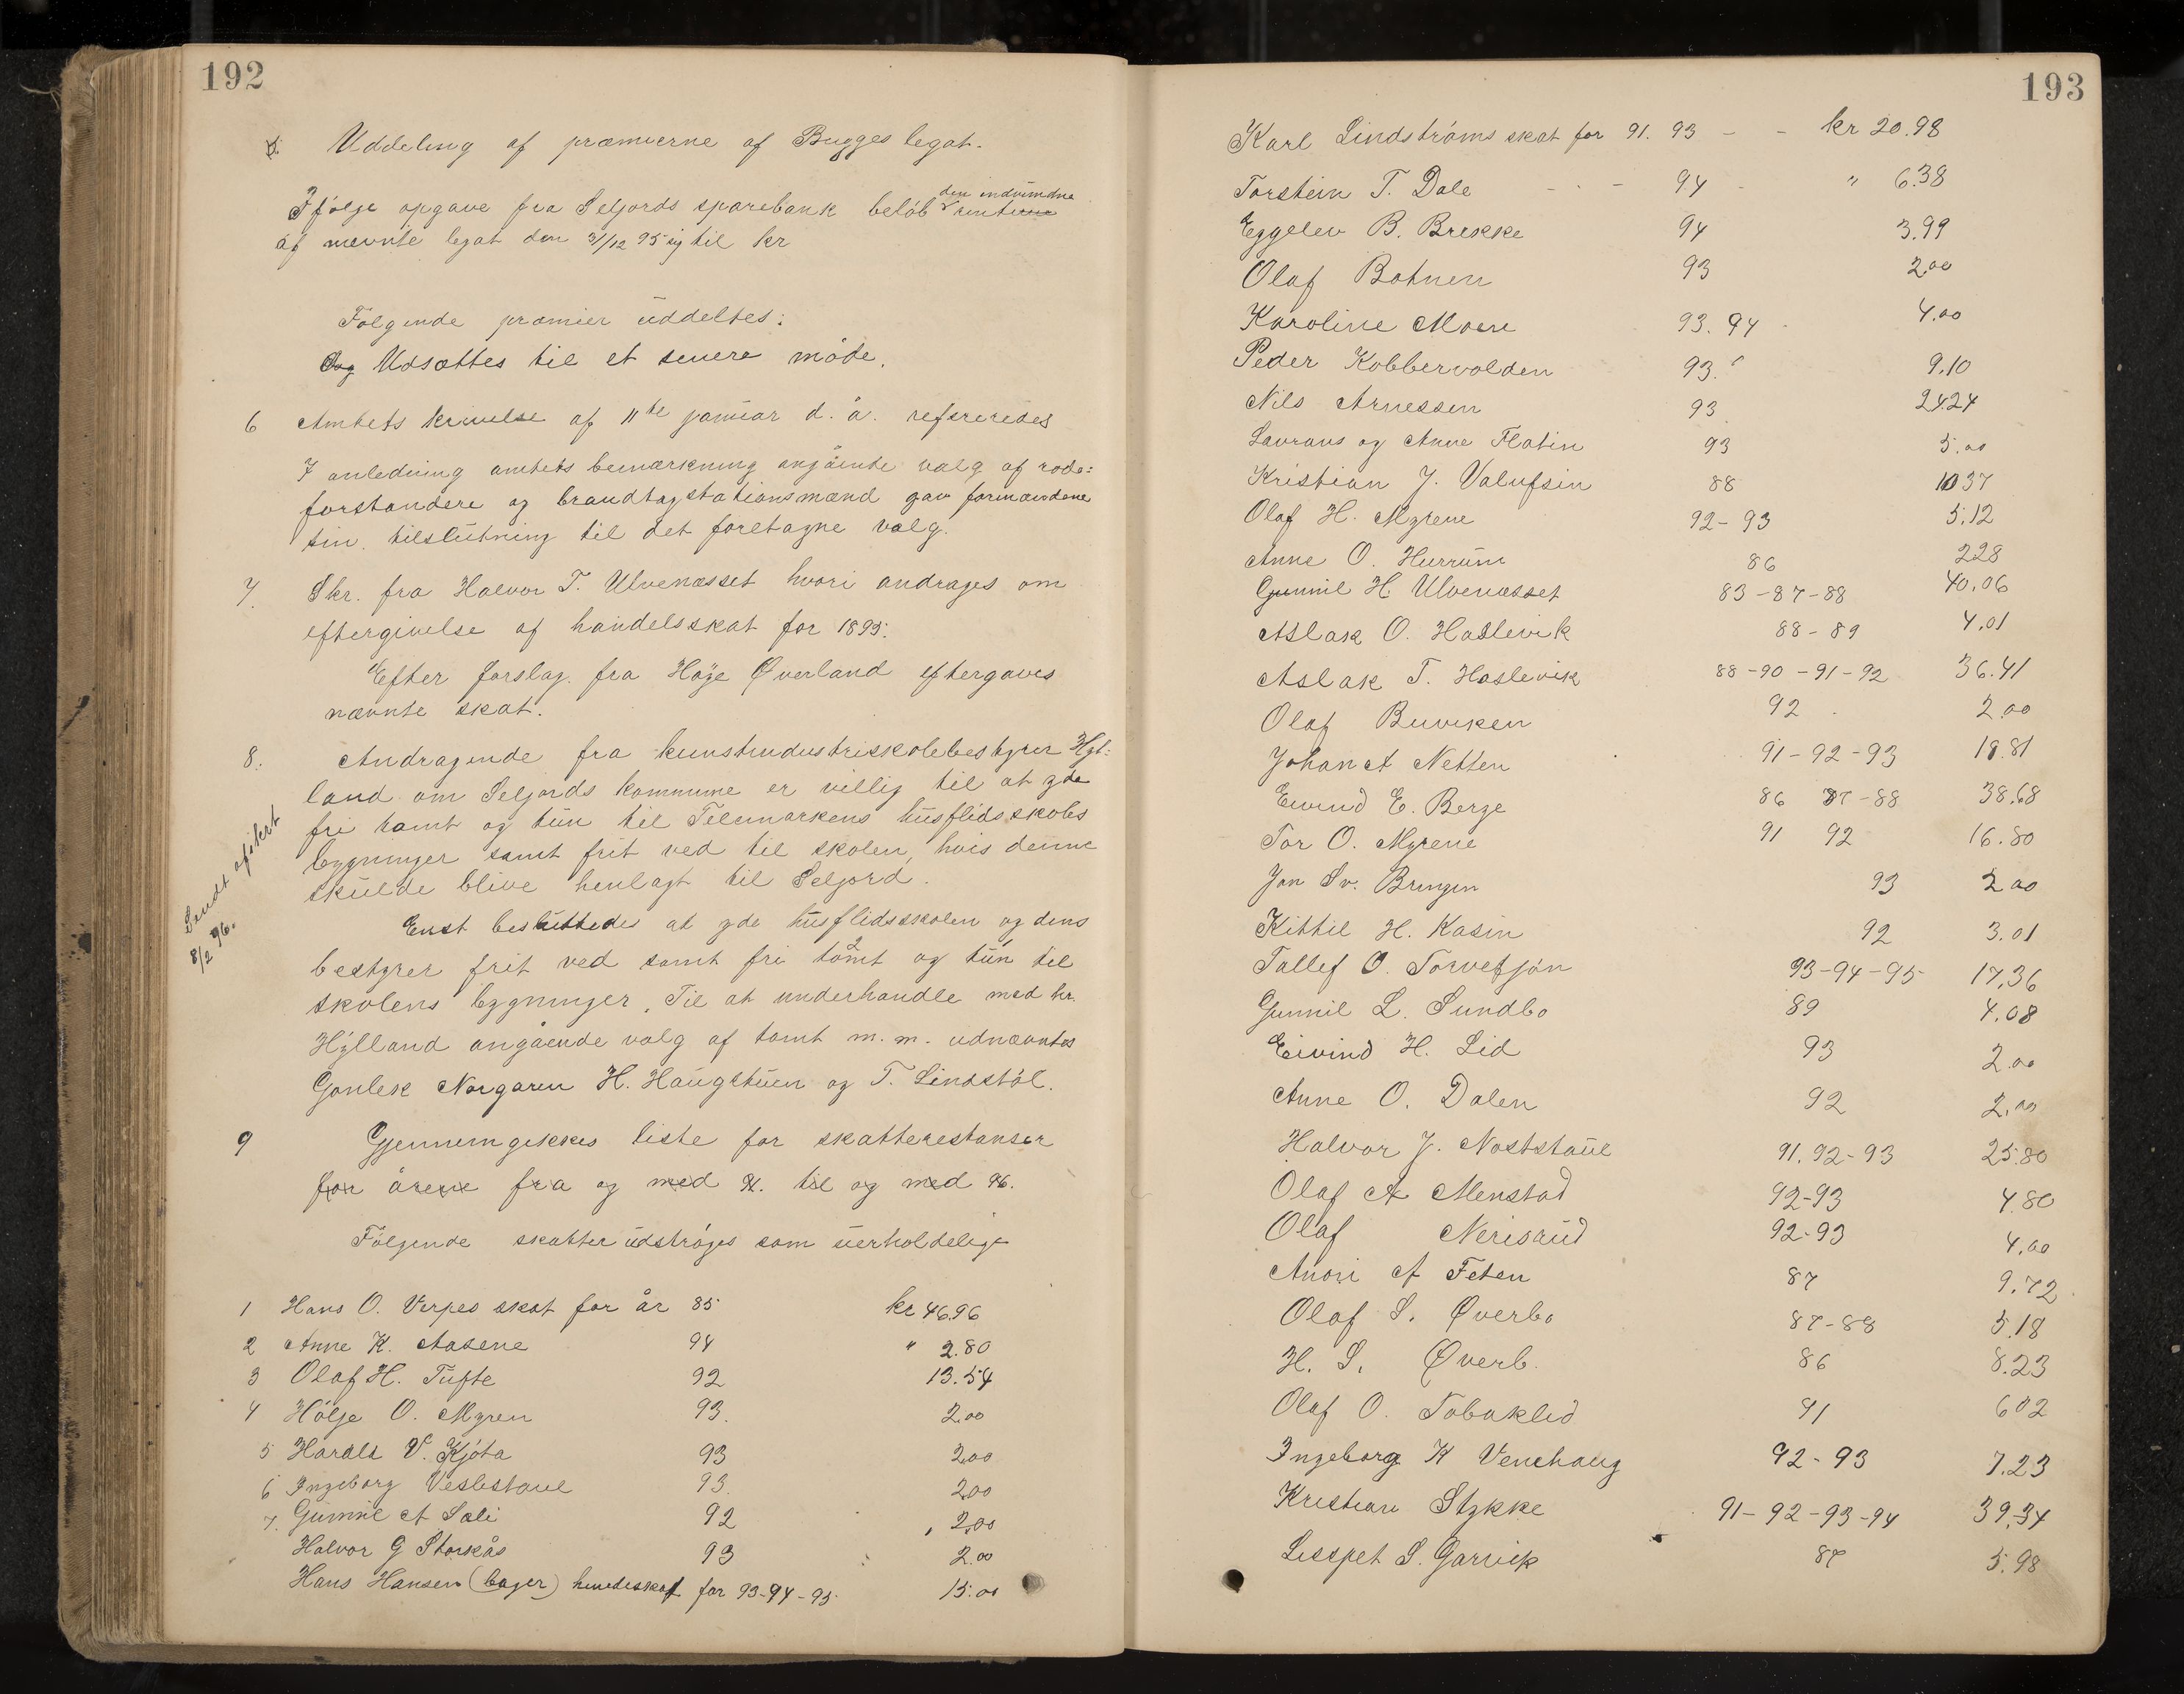 192
5. Uddeling af præmierne af Bugges legat.
Ifølge opgave fra Seljords sparebank beløb den indvundne rente
af nævnte legat den 31/12 95 sig til kr
Følgende præmier uddeltes:
Udsættes til et senere møde.
6 Amtets skrivelse af 11te januar d. å. refereredes
I anledning amtets bemærkning angående valg af rode=
forstandere og brandtagstationsmænd gav formændene
sin tilslutning til det foretagne valg.
7. Skr. fra Halvor T. Ulvenæsset hvori andrages om
eftergivelse af handelsskat for 1895.
Efter forslag fra Høye Øverland eftergaves
nævnte skat.
8. Andragende fra kunstindustriskolebestyrer Hyl=
land om Seljords kommune er villig til at yde
fri tomt og tun til Telemarkens husflidsskoles
bygninger samt frit ved til skolen, hvis denne
skulde blive henlagt til Seljord.
Sendt afskrift
8/2 96.
Enst. besluttedes at yde husflidsskolen og dens
bestyrer frit ved samt fri tomt og tun til
skolens bygninger. Til at underhandle med hr.
Hylland angående valg af tomt m. m. udnævntes
Gonlek Norgaren H. Haugetuen og T. Lindstøl.
9 Gjennemgikkes liste for skatterestanser
for årene fra og med 91. til og med 96.
Følgende skatter udstrøges som uerholdelige
1 Hans O. Verpes skat for år 85 kr 46.96
2 Anne K. Aasene 94 " 2.80
3 Olaf H. Tufte 92 13.54
4 Hølje O. Myren 93. 2.00
5 Harald V. Kjøta 93 2.00
6 Ingeborg Veslestaul 93. 2.00
7. Gunnil A Sæli 92 2.00
Halvor G Storkås 93 2.00
Hans Hansen (bager) hundeskat for 93-94-95 15.00
193
Karl Lindstrøms skat for 91. 93 - - kr 20.98
Torstein T. Dale - - - 94 - " 6.38
Eggelev B. Brekke 94 3.99
Olaf Botnen 93 2.00
Karoline Moen 93. 94 4.00
Peder Kobbervolden 93. 9.10
Nils Arnessen 93. 24.24
Lavrans og Anne Flatin 93 5.00
Kristian J. Valufsin 88 10 37
Olaf H. Myrene 92-93 5.12
Anne O. Hurrum 86 2.28
Gunnil H. Ulvenæsset 83-87-88 40.06
Aslak O. Haslevik 88-89 4.01
Aslak T. Haslevik 88-90-91-92 36.41
Olaf Buviken 92 2.00
Johan A Netten 91-92-93 18.81
Eivind E. Berge 86 87-88 38.68
Tor O. Myrene 91 92 16.80
Jon Sv. Bringen 93 2 00
Kittil H. Kasin 92 3.01
Tallef O. Torvetjøn 93-94-95 17,36
Gunnil L. Sundbo 89 4.08
Eivind H. Lid 93 2.00
Anne O. Dalen 92 2.00
Halvor J. Nordstaul 91. 92-93 25.80
Olaf A Menstad 92-93 4.80
Olaf Nerisrud 92-93 4.00
Anori A Feten 87 9.72
Olaf S. Øverbø 87-88 5.18
H. S. Øverb. 86 8.23
Olaf O. Tobaklid 91 6 02
Ingeborg K Venehaug 92-93 7.23
Kristian Stykke 91-92-93-94 39.34
Lisspet S. Garvik 87 5.98